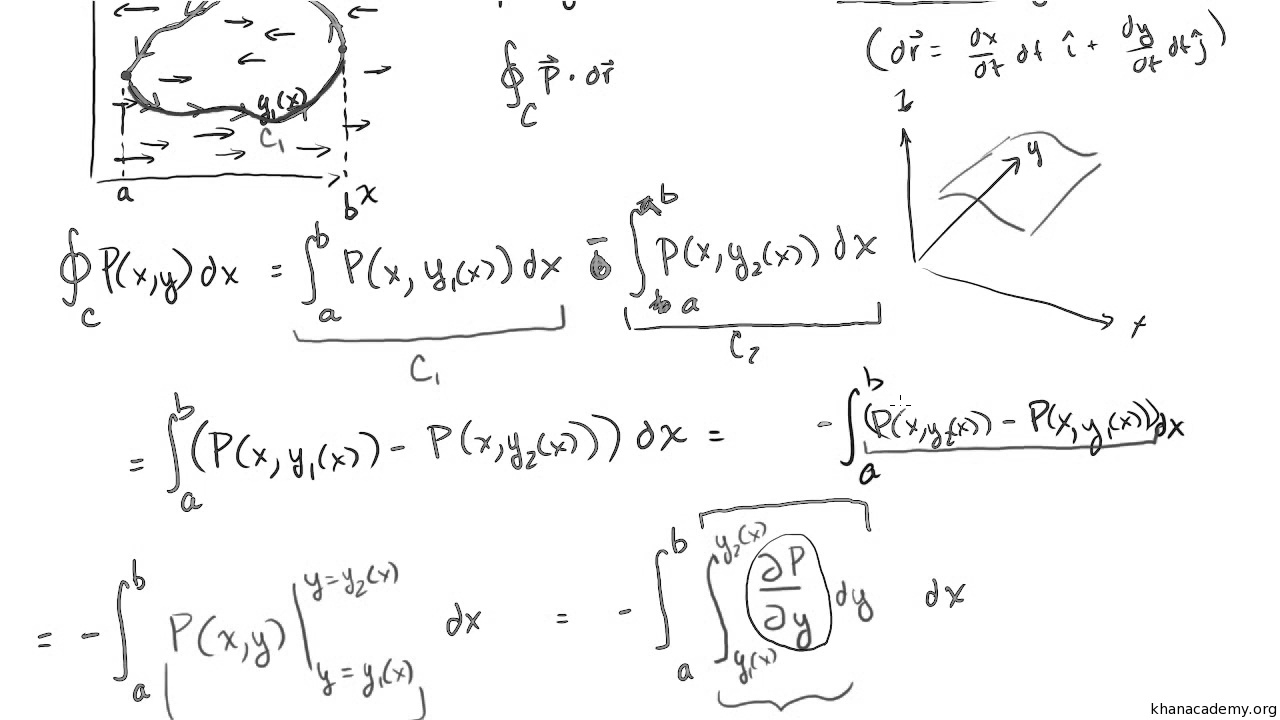 (dr⃗ = dx/dt dt î + dy/dt dt ĵ)
∮_C P⃗ · dr⃗
y₁(x)
C₁
a
b x
z
y
x
∮_C P(x,y) dx = ∫_a^b P(x, y₁(x)) dx - ∫_a^b P(x, y₂(x)) dx
C₁
C₂
= ∫_a^b (P(x, y₁(x)) - P(x, y₂(x))) dx = - ∫_a^b (P(x, y₂(x)) - P(x, y₁(x))) dx
= - ∫_a^b P(x,y) |_{y = y₁(x)}^{y = y₂(x)} dx = - ∫_a^b ∫_{y₁(x)}^{y₂(x)} ∂P/∂y dy dx
khanacademy.org